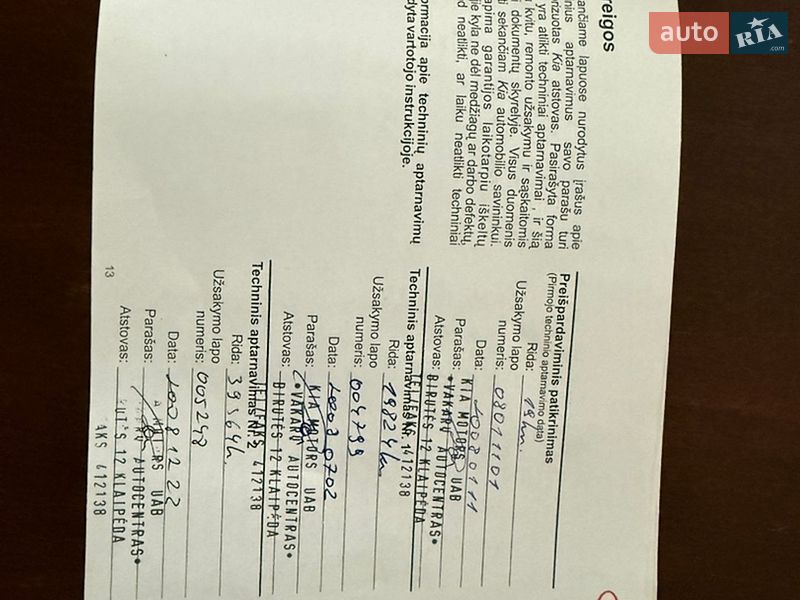 auto RIA .com
reigos
ančiame lapuose nurodytus įrašus apie
nius aptarnavimus savo parašu turi
rizuotas Kia atstovas. Pasirašyta forma
yra atlikti techniniai aptarnavimai, ir šią
kvitu, remonto užsakymu ir sąskaitomis
i dokumentų skyrelyje. Visus duomenis
ti sekančiam Kia automobilio savininkui.
apima garantijos laikotarpiu iškeltų
ie kyla ne dėl medžiagų ar darbo defektų,
d neatlikti, ar laiku neatlikti techniniai
ormacija apie techninių aptarnavimų
dyta vartotojo instrukcijoje.
Preišpardavimìnis patikrinimas
(Pirmojo techninio aptarnavimo data)
Rida: 19km.
Užsakymo lapo
numeris: 08011101
Data: 20080111
Parašas: KIA MOTORS UAB
•VAKARŲ AUTOCENTRAS•
Atstovas: BIRUTĖS 12 KLAIPĖDA
TEL/FAKS 412138
Techninis aptarnavimas Nr. 1
Rida: 19824k.
Užsakymo lapo
numeris: 004799
Data: 20080702
Parašas: KIA MOTORS UAB
•VAKARŲ AUTOCENTRAS•
Atstovas: BIRUTĖS 12 KLAIPĖDA
412138
Techninis aptarnavimas Nr. 2
Rida: 39564k.
Užsakymo lapo
numeris: 005248
Data: 20081222
Parašas: UAB
AUTOCENTRAS•
Atstovas: 12 KLAIPĖDA
412138
13